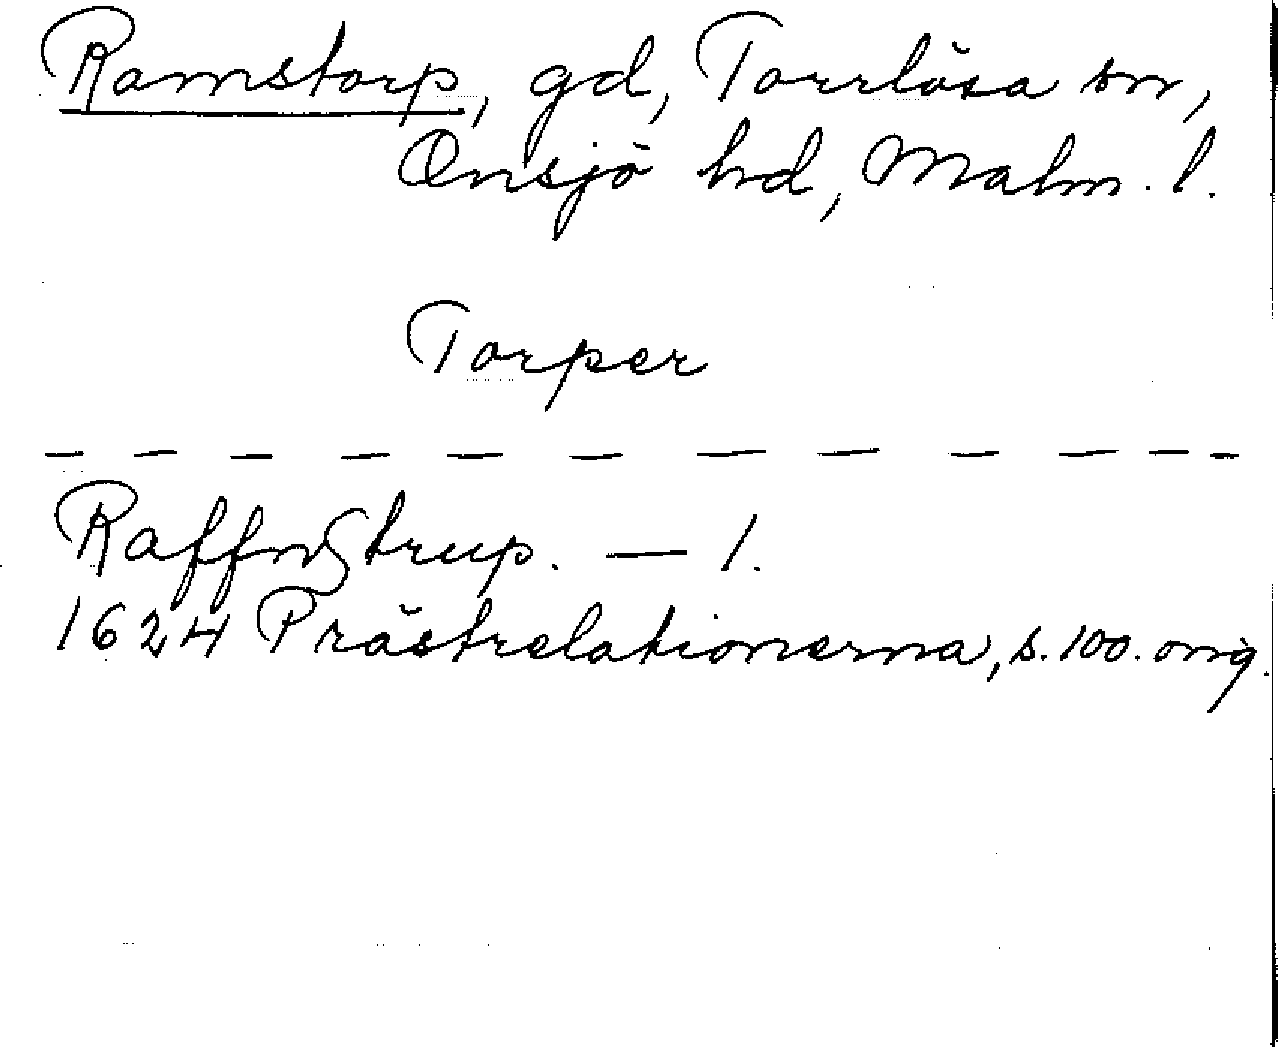 Ramstorp, gd, Torrlösa sn,
Onsjö hd, Malm. l.
Torper
Raffnstrup. — 1.
1624 Prästrelationerna, s. 100. orig.